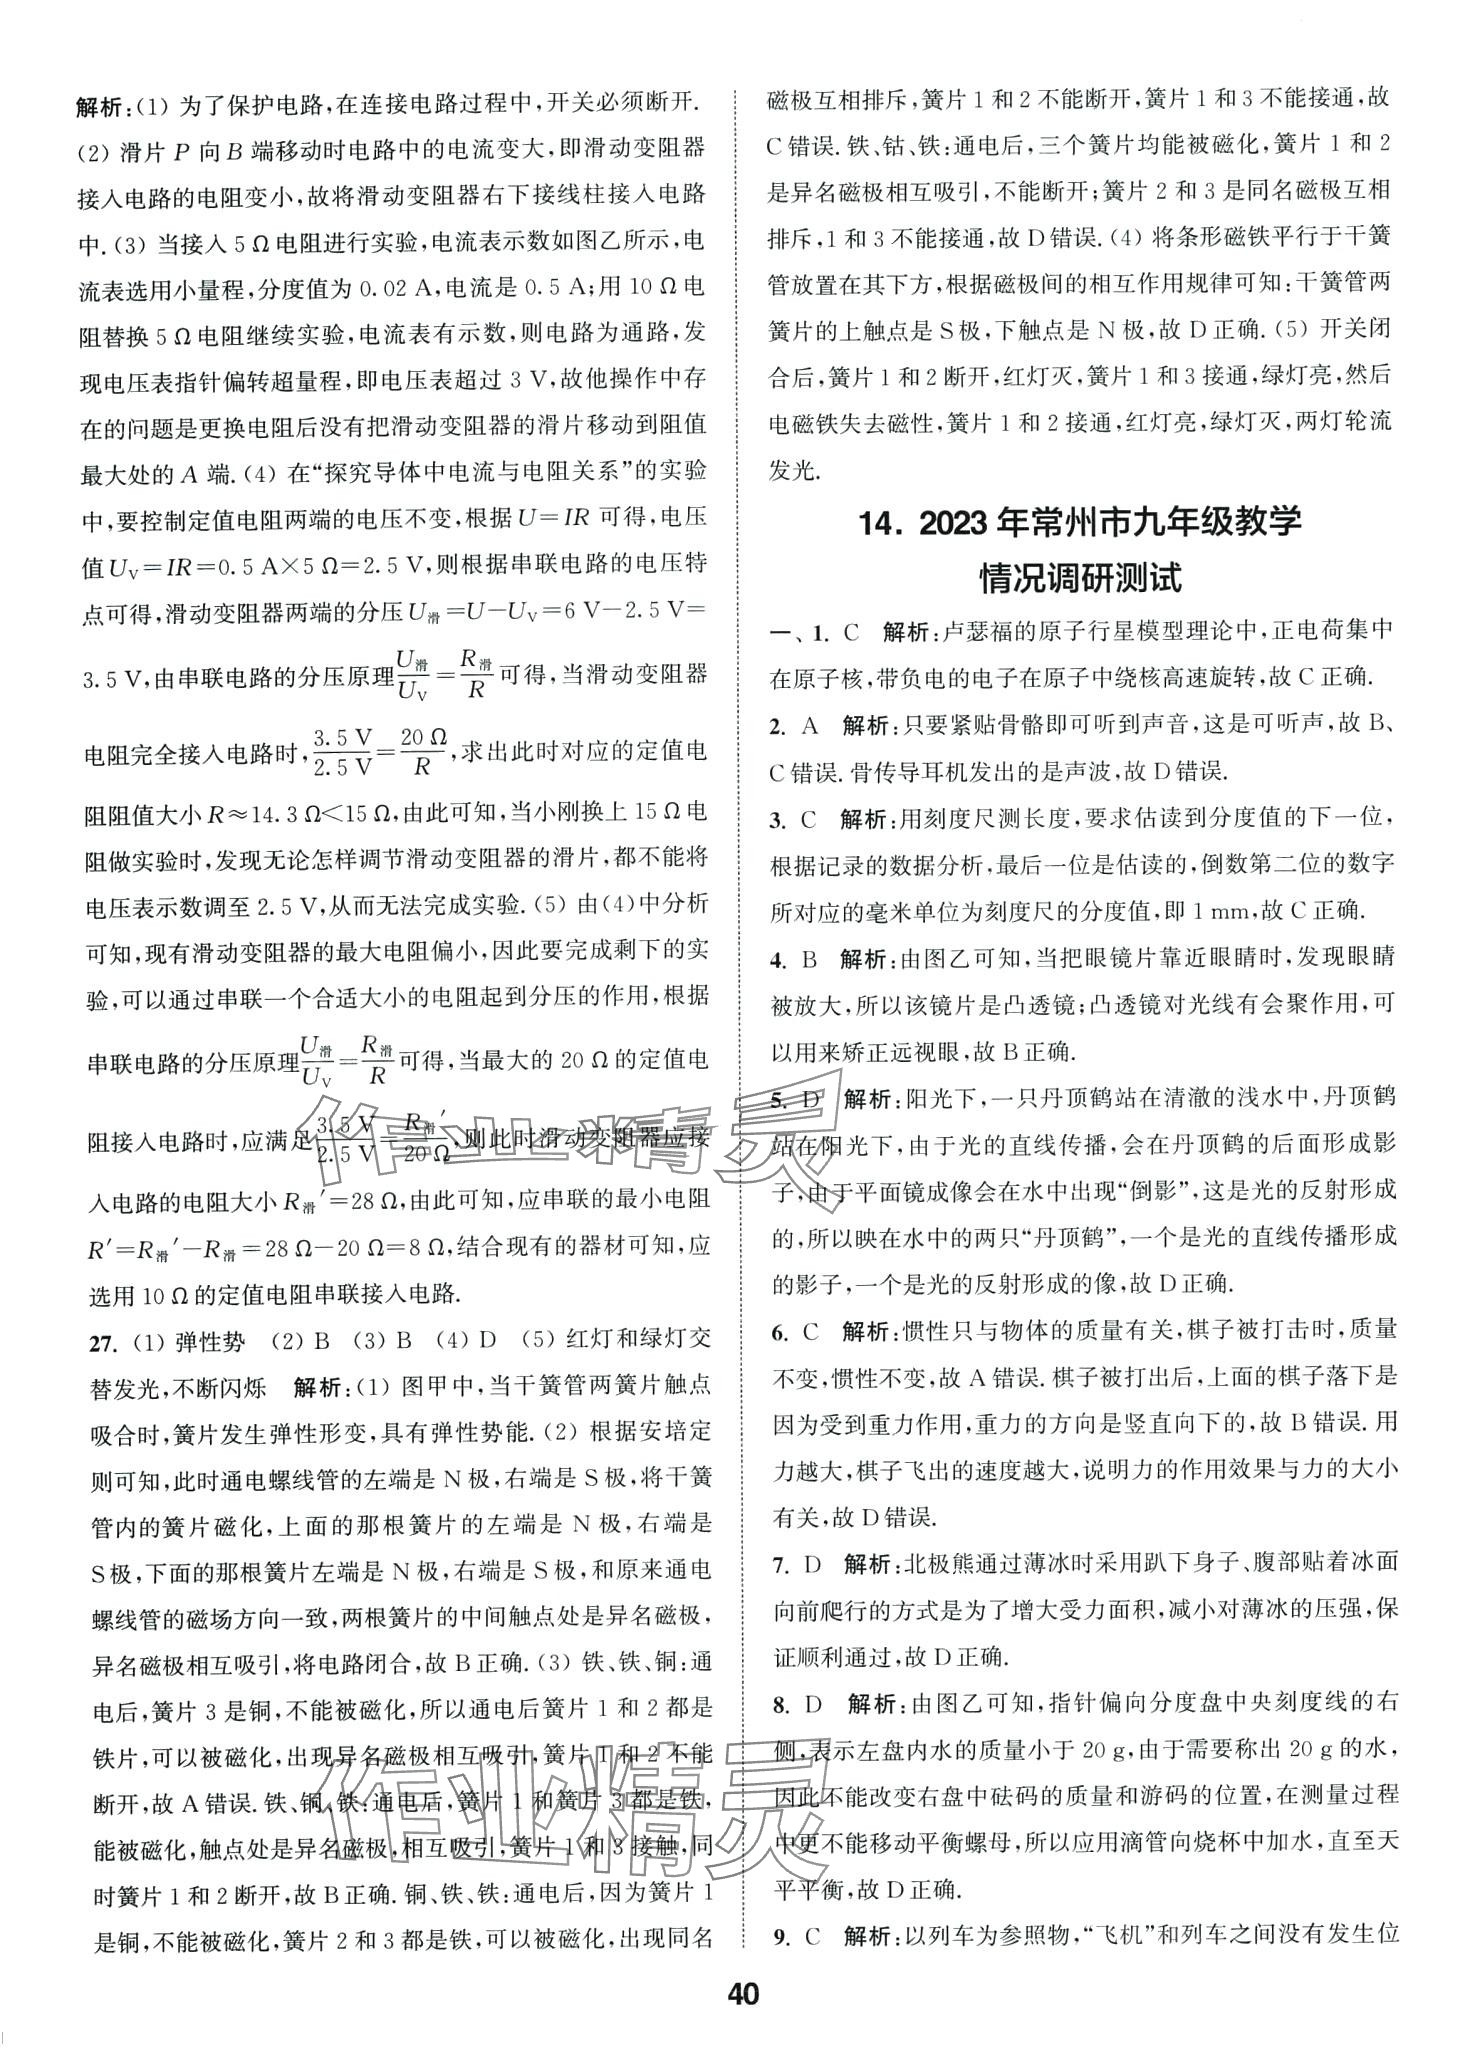 解析:(1) 为了保护电路,在连接电路过程中,开关必须断开.
(2) 滑片 P 向 B 端移动时电路中的电流变大,即滑动变阻器
接入电路的电阻变小,故将滑动变阻器右下接线柱接入电路
中.(3) 当接入 5 Ω 电阻进行实验,电流表示数如图乙所示,电
流表选用小量程,分度值为 0.02 A,电流是 0.5 A;用 10 Ω 电
阻替换 5 Ω 电阻继续实验,电流表有示数,则电路为通路,发
现电压表指针偏转超量程,即电压表超过 3 V,故他操作中存
在的问题是更换电阻后没有把滑动变阻器的滑片移动到阻值
最大处的 A 端.(4) 在“探究导体中电流与电阻关系”的实验
中,要控制定值电阻两端的电压不变,根据 U=IR 可得,电压
值 U_V=IR=0.5 A×5 Ω=2.5 V,则根据串联电路的电压特
点可得,滑动变阻器两端的分压 U_滑=U-U_V=6 V-2.5 V=
3.5 V,由串联电路的分压原理 U_滑/U_V=R_滑/R 可得,当滑动变阻器
电阻完全接入电路时, 3.5 V/2.5 V=20 Ω/R,求出此时对应的定值电
阻阻值大小 R≈14.3 Ω<15 Ω,由此可知,当小刚换上 15 Ω 电
阻做实验时,发现无论怎样调节滑动变阻器的滑片,都不能将
电压表示数调至 2.5 V,从而无法完成实验.(5) 由(4)中分析
可知,现有滑动变阻器的最大电阻偏小,因此要完成剩下的实
验,可以通过串联一个合适大小的电阻起到分压的作用,根据
串联电路的分压原理 U_滑/U_V=R_滑/R 可得,当最大的 20 Ω 的定值电
阻接入电路时,应满足 3.5 V/2.5 V=R_滑′/20 Ω,则此时滑动变阻器应接
入电路的电阻大小 R_滑′=28 Ω,由此可知,应串联的最小电阻
R′=R_滑′-R_滑=28 Ω-20 Ω=8 Ω,结合现有的器材可知,应
选用 10 Ω 的定值电阻串联接入电路.
27. (1) 弹性势 (2) B (3) B (4) D (5) 红灯和绿灯交
替发光,不断闪烁 解析:(1) 图甲中,当干簧管两簧片触点
吸合时,簧片发生弹性形变,具有弹性势能.(2) 根据安培定
则可知,此时通电螺线管的左端是 N 极,右端是 S 极,将干簧
管内的簧片磁化,上面的那根簧片的左端是 N 极,右端是
S 极,下面的那根簧片左端是 N 极,右端是 S 极,和原来通电
螺线管的磁场方向一致,两根簧片的中间触点处是异名磁极,
异名磁极相互吸引,将电路闭合,故 B 正确.(3) 铁、铁、铜:通
电后,簧片 3 是铜,不能被磁化,所以通电后簧片 1 和 2 都是
铁片,可以被磁化,出现异名磁极相互吸引,簧片 1 和 2 不能
断开,故 A 错误.铁、铜、铁:通电后,簧片 1 和簧片 3 都是铁,
能被磁化,触点处是异名磁极,相互吸引,簧片 1 和 3 接触,同
时簧片 1 和 2 断开,故 B 正确.铜、铁、铁:通电后,因为簧片 1
是铜,不能被磁化,簧片 2 和 3 都是铁,可以被磁化,出现同名
磁极互相排斥,簧片 1 和 2 不能断开,簧片 1 和 3 不能接通,故
C 错误.铁、钴、铁:通电后,三个簧片均能被磁化,簧片 1 和 2
是异名磁极相互吸引,不能断开;簧片 2 和 3 是同名磁极互相
排斥,1 和 3 不能接通,故 D 错误.(4) 将条形磁铁平行于干簧
管放置在其下方,根据磁极间的相互作用规律可知:干簧管两
簧片的上触点是 S 极,下触点是 N 极,故 D 正确.(5) 开关闭
合后,簧片 1 和 2 断开,红灯灭,簧片 1 和 3 接通,绿灯亮,然后
电磁铁失去磁性,簧片 1 和 2 接通,红灯亮,绿灯灭,两灯轮流
发光.
14. 2023 年常州市九年级教学
情况调研测试
一、1. C 解析:卢瑟福的原子行星模型理论中,正电荷集中
在原子核,带负电的电子在原子中绕核高速旋转,故 C 正确.
2. A 解析:只要紧贴骨骼即可听到声音,这是可听声,故 B、
C 错误.骨传导耳机发出的是声波,故 D 错误.
3. C 解析:用刻度尺测长度,要求估读到分度值的下一位,
根据记录的数据分析,最后一位是估读的,倒数第二位的数字
所对应的毫米单位为刻度尺的分度值,即 1 mm,故 C 正确.
4. B 解析:由图乙可知,当把眼镜片靠近眼睛时,发现眼睛
被放大,所以该镜片是凸透镜;凸透镜对光线有会聚作用,可
以用来矫正远视眼,故 B 正确.
5. D 解析:阳光下,一只丹顶鹤站在清澈的浅水中,丹顶鹤
站在阳光下,由于光的直线传播,会在丹顶鹤的后面形成影
子,由于平面镜成像会在水中出现“倒影”,这是光的反射形成
的,所以映在水中的两只“丹顶鹤”,一个是光的直线传播形成
的影子,一个是光的反射形成的像,故 D 正确.
6. C 解析:惯性只与物体的质量有关,棋子被打击时,质量
不变,惯性不变,故 A 错误.棋子被打出后,上面的棋子落下是
因为受到重力作用,重力的方向是竖直向下的,故 B 错误.用
力越大,棋子飞出的速度越大,说明力的作用效果与力的大小
有关,故 D 错误.
7. D 解析:北极熊通过薄冰时采用趴下身子、腹部贴着冰面
向前爬行的方式是为了增大受力面积,减小对薄冰的压强,保
证顺利通过,故 D 正确.
8. D 解析:由图乙可知,指针偏向分度盘中央刻度线的右
侧,表示左盘内水的质量小于 20 g,由于需要称出 20 g 的水,
因此不能改变右盘中砝码的质量和游码的位置,在测量过程
中更不能移动平衡螺母,所以应用滴管向烧杯中加水,直至天
平平衡,故 D 正确.
9. C 解析:以列车为参照物,“飞机”和列车之间没有发生位
40
作业精灵
作业精灵